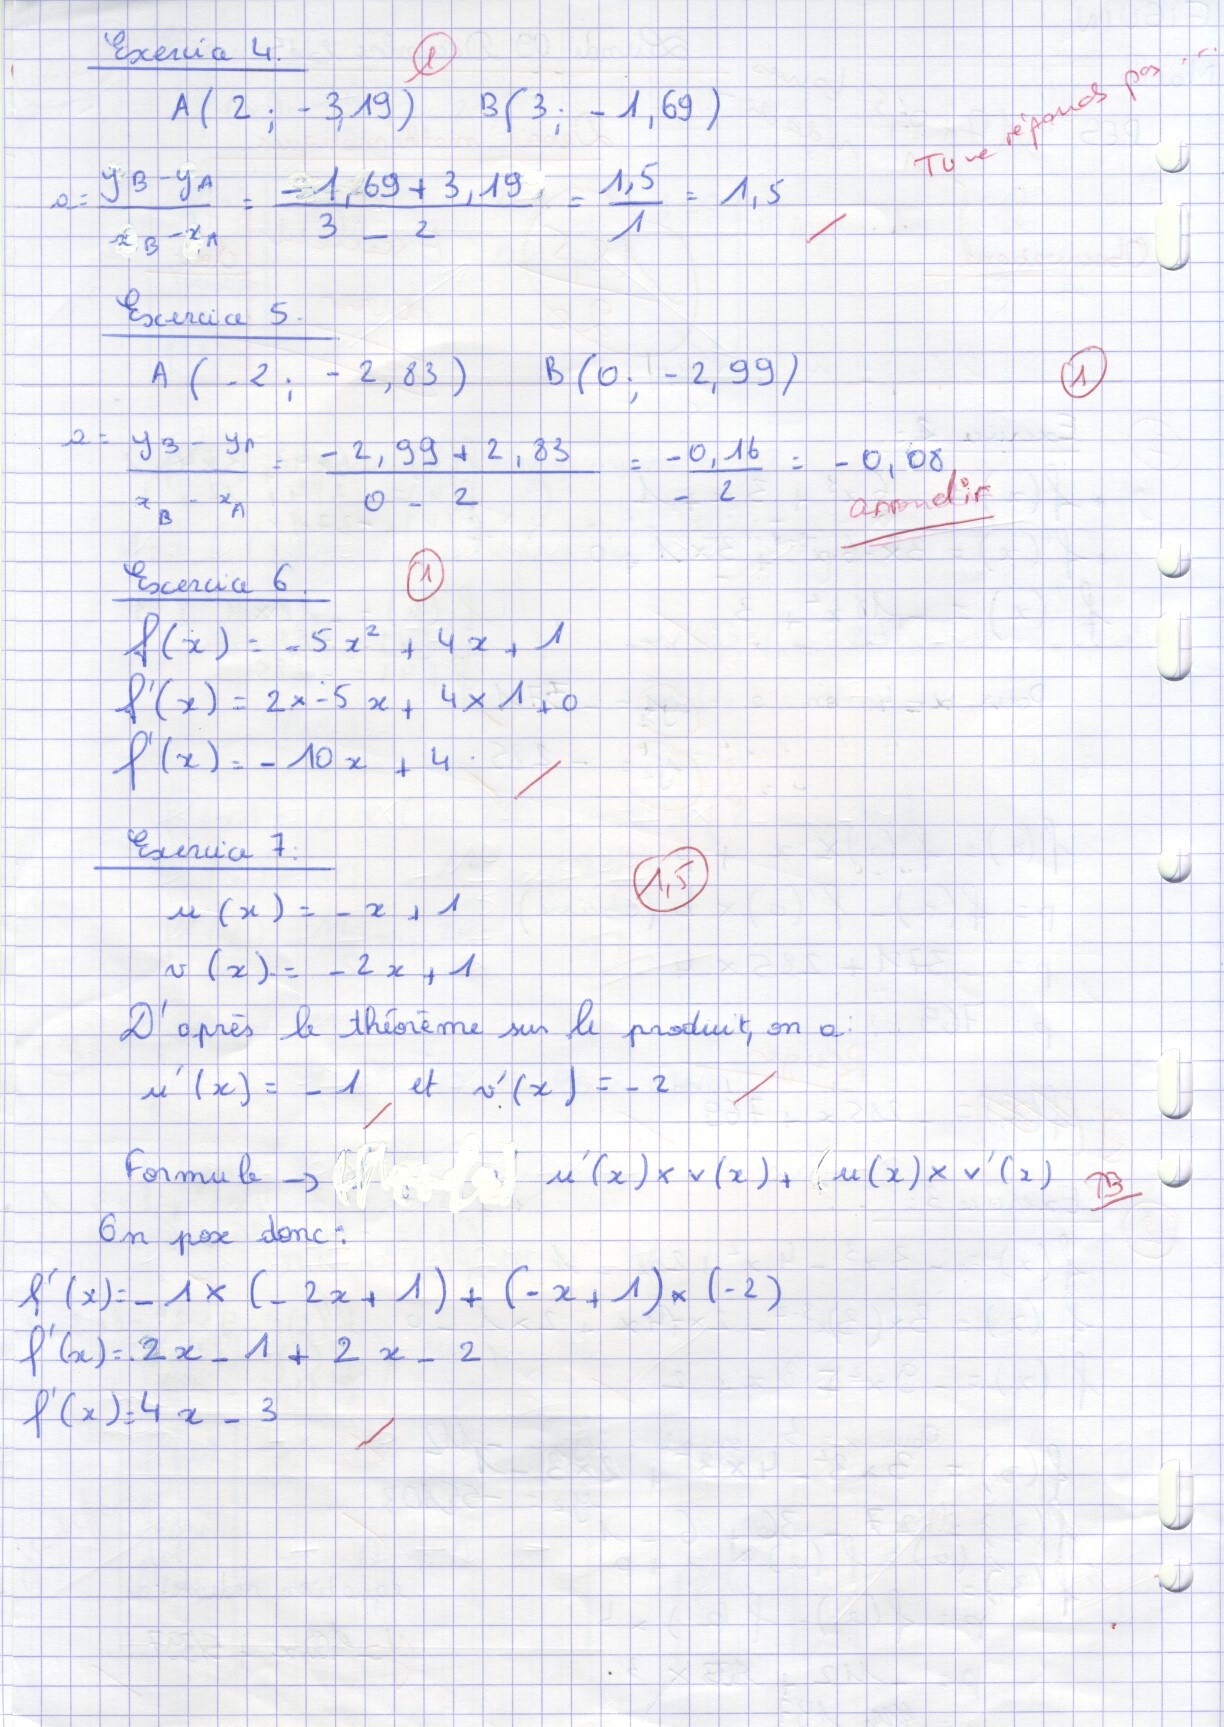 Exercice 4.
1
A(2 ; -3,19) B(3 ; -1,69)
Tu ne réponds pas...
a = yB - yA / xB - xA = -1,69 + 3,19 / 3 - 2 = 1,5 / 1 = 1,5
Exercice 5.
A(-2 ; -2,83) B(0 ; -2,99)
1
a = yB - yA / xB - xA = -2,99 + 2,83 / 0 - 2 = -0,16 / - 2 = -0,08
arrondir
Exercice 6.
1
f(x) = -5x² + 4x + 1
f'(x) = 2x-5x + 4x1+0
f'(x) = -10x + 4.
Exercice 7.
1,5
u(x) = -x + 1
v(x) = -2x + 1
D'après le théorème sur le produit, on a :
u'(x) = -1 et v'(x) = -2
Formule → u'(x) × v(x) + (u(x) × v'(x)
TB
On pose donc :
f'(x) = -1 × (-2x + 1) + (-x + 1) × (-2)
f'(x) = 2x - 1 + 2x - 2
f'(x) = 4x - 3